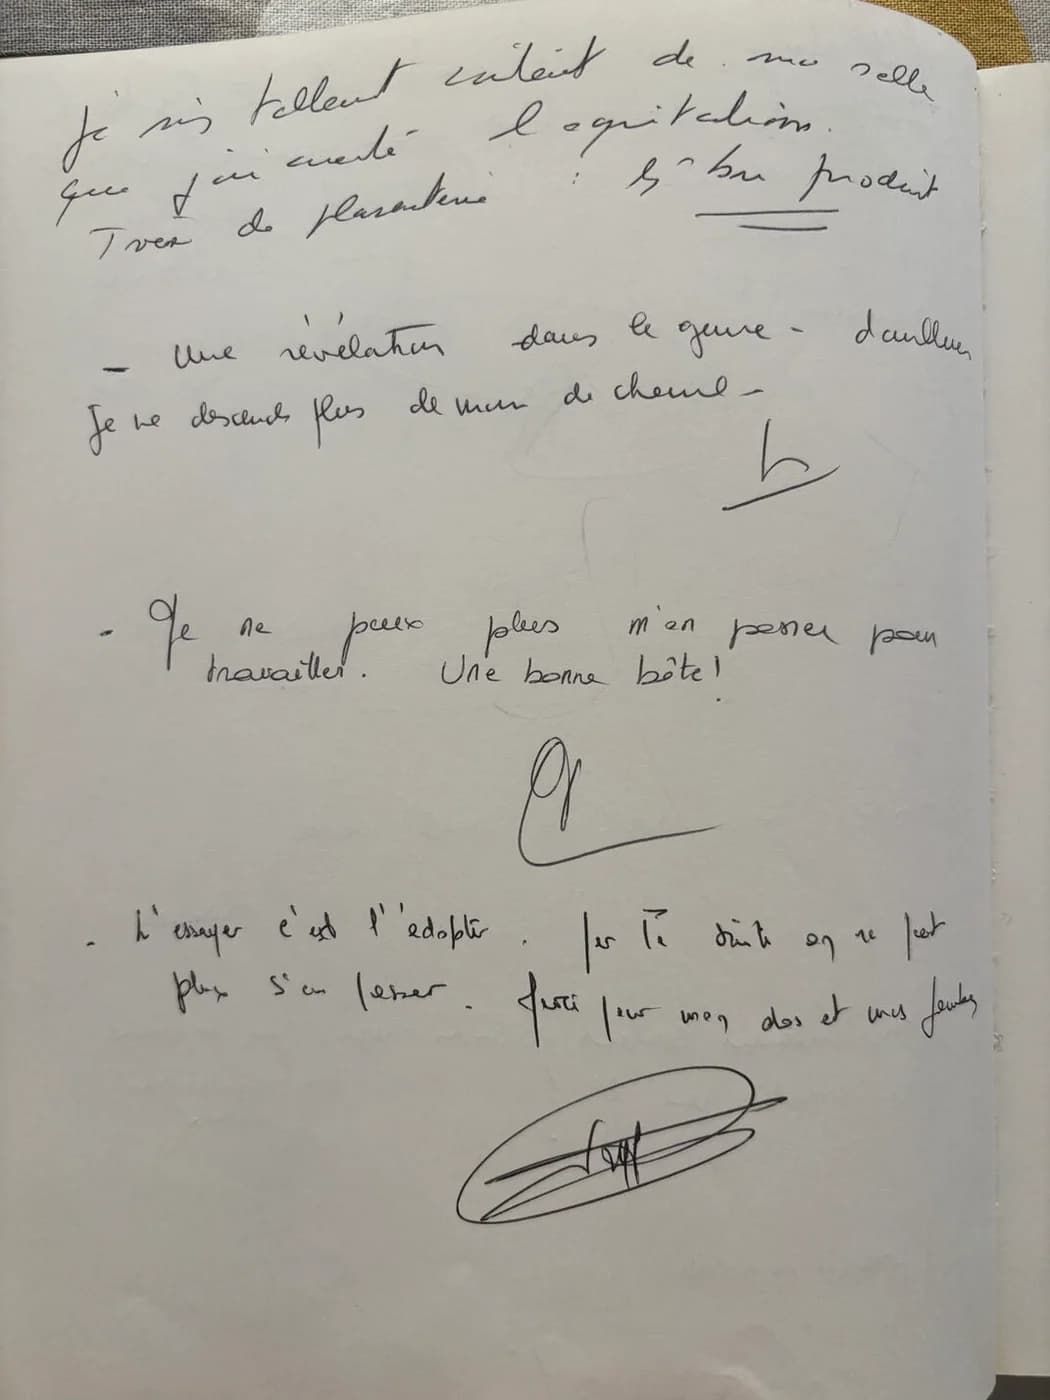 Je suis tellement content de ma selle
que j'ai arrêté l'equitations.
Treve de plaisanterie : bon produit
- Une révélation dans le genre - d'ailleurs
Je ne descends plus de mon de cheval -
- Je ne peux plus m'en passer pour
travailler. Une bonne bête!
- L'essayer c'est l'adopter. on ne peut
plus s'en passer. Merci pour mon dos et mes fesses